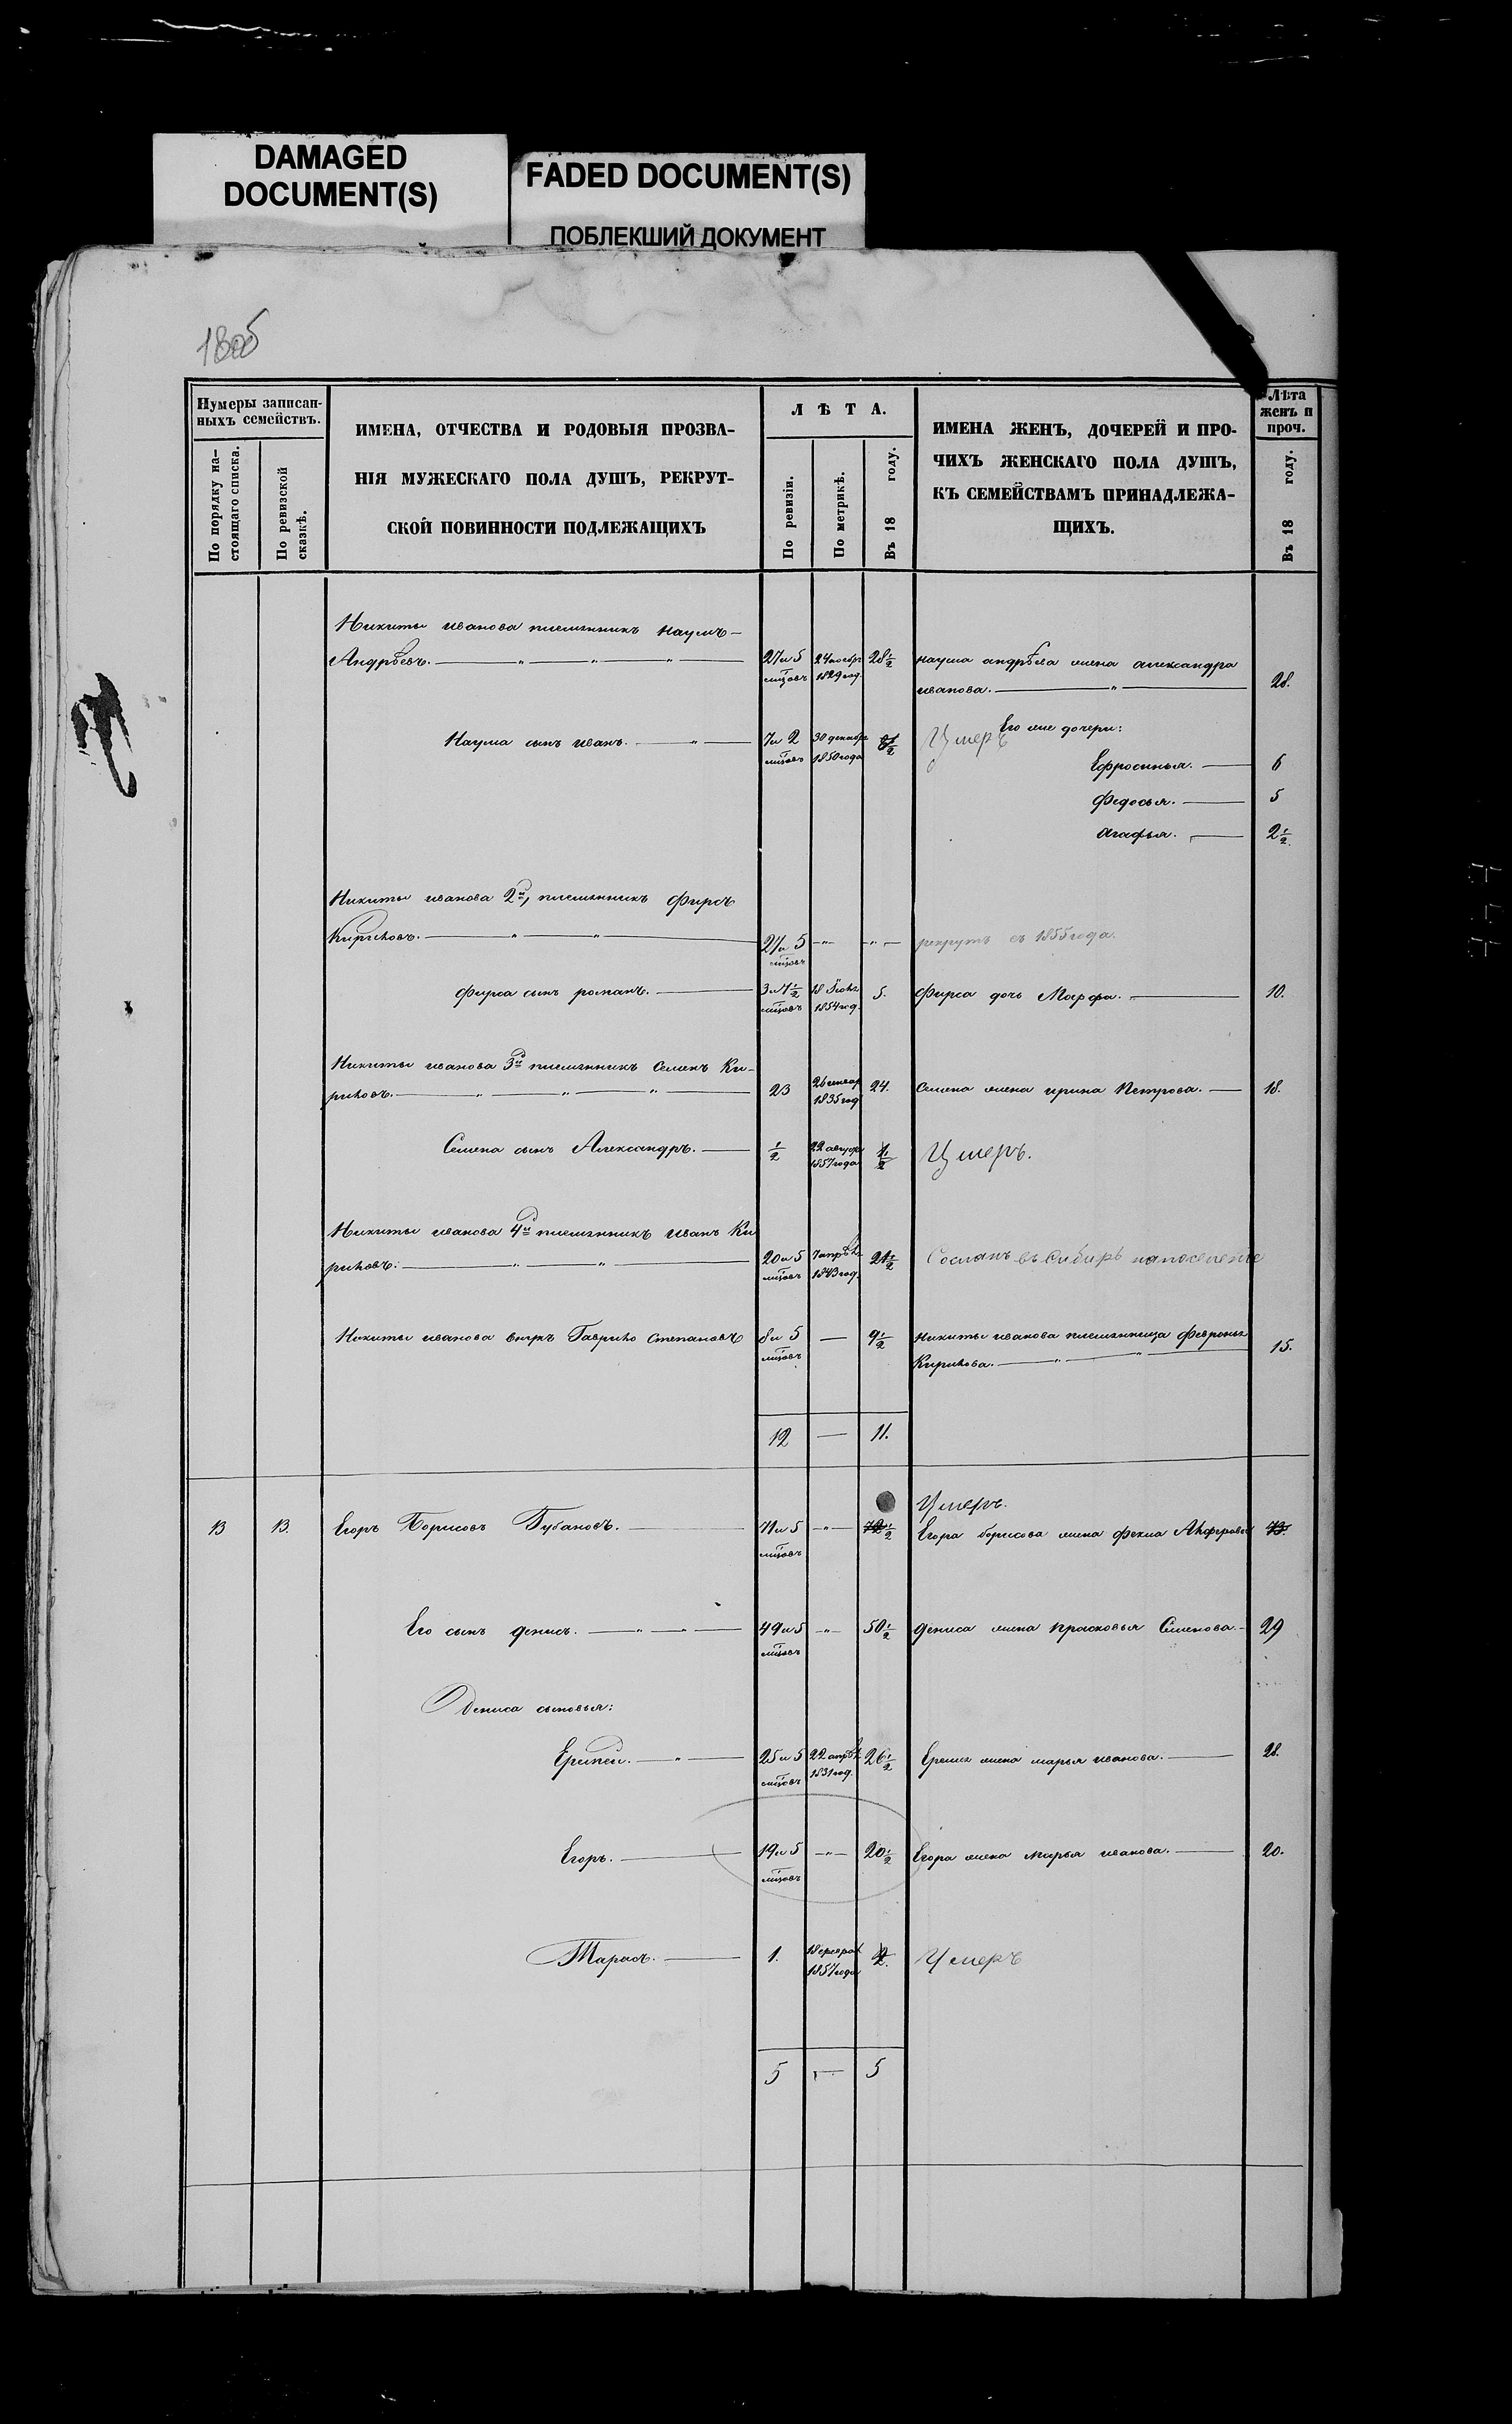 DAMAGED
DOCUMENT(S)
FADED DOCUMENT(S)
ПОБЛЕКШИЙ ДОКУМЕНТ
180об
Нумеры записан-
ныхъ семействъ.
По порядку на-
стоящаго списка.
По ревизской
сказкѣ.
ИМЕНА, ОТЧЕСТВА И РОДОВЫЯ ПРОЗВА-
НІЯ МУЖЕСКАГО ПОЛА ДУШЪ, РЕКРУТ-
СКОЙ ПОВИННОСТИ ПОДЛЕЖАЩИХЪ
ЛѢТА.
По ревизіи.
По метрикѣ.
Въ 18 году.
ИМЕНА ЖЕНЪ, ДОЧЕРЕЙ И ПРО-
ЧИХЪ ЖЕНСКАГО ПОЛА ДУШЪ,
КЪ СЕМЕЙСТВАМЪ ПРИНАДЛЕЖА-
ЩИХЪ.
Лѣта
женъ и
проч.
Въ 18 году.
Никиты иванова племянникъ наумъ
Андрѣевъ. 27 и 5 мцовъ 24 ноябр 1829 год. 28½ наума андрѣва жена александра
иванова. 28.
Наума сынъ иванъ. 7 и 2 мцовъ 30 декабр 1850 года Умеръ Его же дочери:
Ефросинья. 6
Федосья. 5
Агафья. 2½
Никиты иванова 2й, племянникъ Фирсъ
Кириковъ. 21 и 5 мцовъ рекрутъ съ 1855 года.
Фирса сынъ романъ. 3 и 4½ мцовъ 18 1854 год. 5. Фирса дочь Марфа. 10.
Никиты иванова 3й племянникъ Семенъ Ки-
риковъ. 23 26 генвар 1835 год 24. Семена жена ирина Петрова. 18.
Семена сынъ Александръ. ½ 22 август 1857 года Умеръ.
Никиты иванова 4й племянникъ иванъ Ки
риковъ. 20 и 5 мцовъ 7 апрѣл год. 21½ Сосланъ въ Сибирь напоселенье
Никиты иванова внукъ Гаврило степановъ 8 и 5 мцовъ 9½ никиты иванова племянница Февронья
Кирикова. 15.
12 — 11.
Умеръ.
13 13. Егоръ Борисовъ Губановъ. 71 и 5 мцовъ 72½ Егора борисова жена фекла 73.
Его сынъ денисъ. 49 и 5 мцовъ 50½ дениса жена прасковья Семенова. 29
Дениса сыновья:
25 и 5 мцовъ 22 апрѣл 1831 год. 26½ жена марья иванова. 28.
Егоръ. 19 и 5 мцовъ 20½ Егора жена марья иванова. 20.
Тарасъ. 1. 18 феврал 1857 года 2. Умеръ
5 — 5